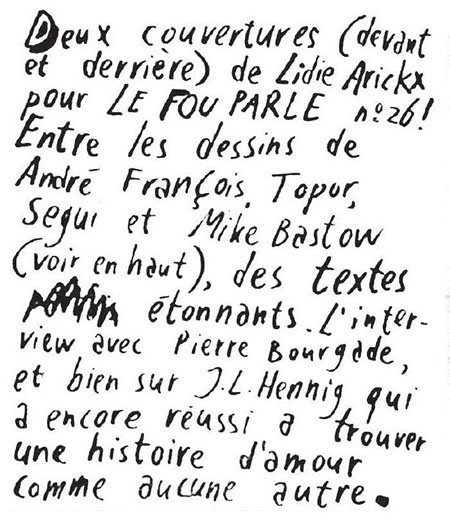 Deux couvertures (devant
et derrière) de Lidie Arickx
pour LE FOU PARLE n°26!
Entre les dessins de
André François, Topor,
Segui et Mike Bastow
(voir en haut), des textes
étonnants. L'inter-
view avec Pierre Bourgade,
et bien sur J.L. Hennig qui
a encore réussi a trouver
une histoire d'amour
comme aucune autre.